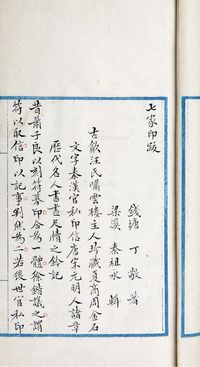 七家印跋
錢塘 丁敬 著
梁溪 秦祖永 輯
古歙汪氏嘯雲樓主人珍藏夏商周金石
文字秦漢官私印信唐宋元明人諸章
歷代名人書畫尺牘之鈐記
昔蕭子良以刻符摹印合為一體徐鍇議之謂
符以取信印以記事判然為二若後世官私印